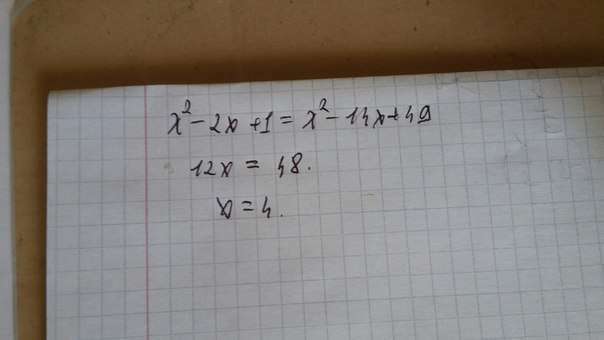 x² - 2x + 1 = x² - 14x + 49
12x = 48.
x = 4.